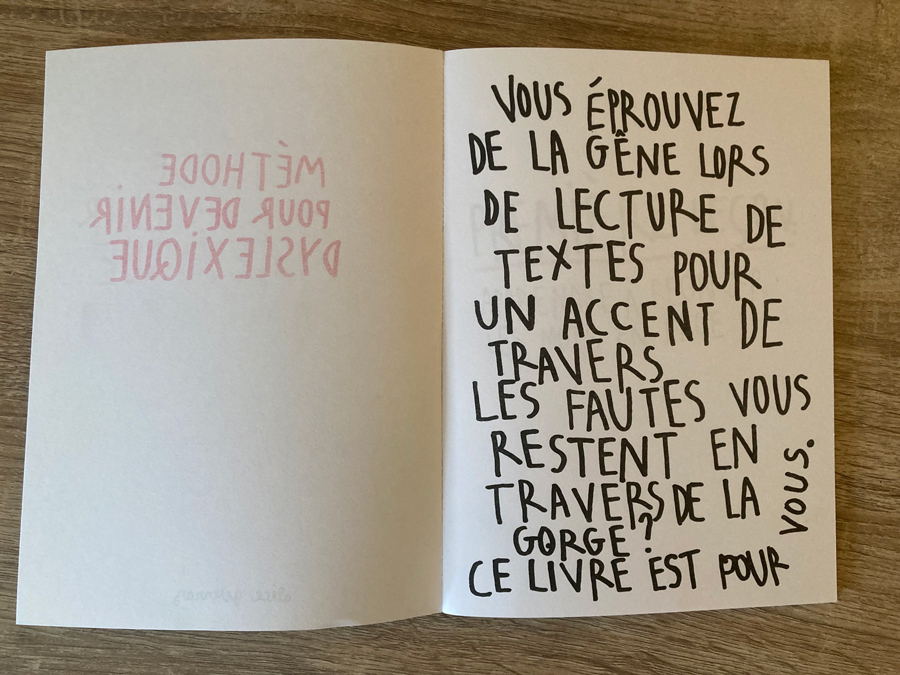 MÉTHODE
POUR DEVENIR
DYSLEXIQUE
VOUS ÉPROUVEZ
DE LA GÊNE LORS
DE LECTURE DE
TEXTES POUR
UN ACCENT DE
TRAVERS
LES FAUTES VOUS
RESTENT EN
TRAVERS DE LA
GORGE?
CE LIVRE EST POUR
VOUS.